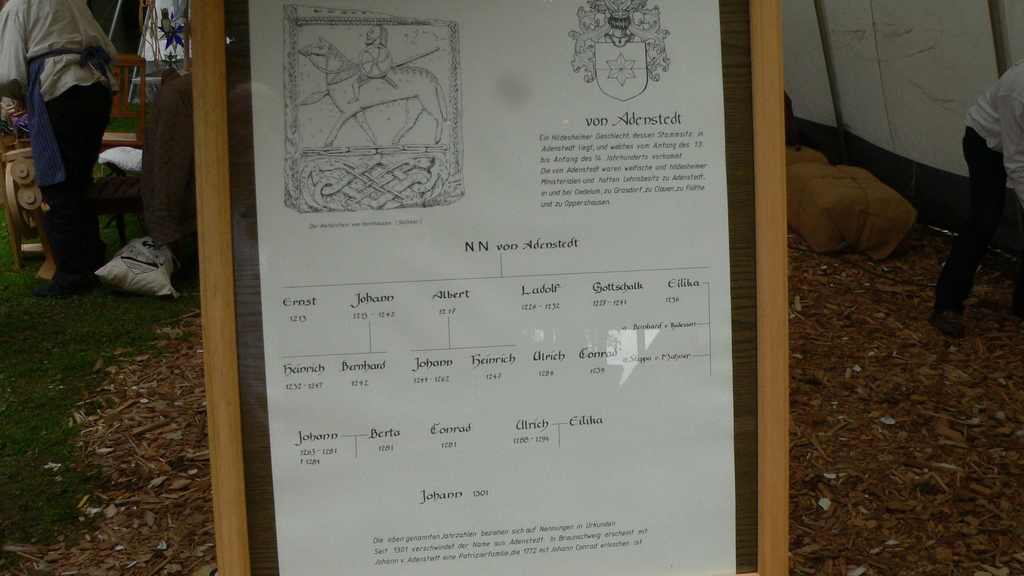 von Adenstedt
Ein Hildesheimer Geschlecht, dessen Stammsitz in
Adenstedt liegt, und welches vom Anfang des 13.
bis Anfang des 14. Jahrhunderts vorkommt.
Die von Adenstedt waren welfische und hildesheimer
Ministerialen und hatten Lehnsbesitz zu Adenstedt,
in und bei Oedelum, zu Grasdorf, zu Clauen, zu Flöthe
und zu Oppershausen.
Der Reiterstein von Hornhausen (Sachsen)
NN von Adenstedt
Ernst Johann Albert Ludolf Gottschalk Eilika
1213 1213 - 1242 1217 1226 - 1232 1227 - 1241 1236
1) Bernhard v.
Heinrich Bernhard Johann Heinrich Ulrich Conrad 2) Steppo v. Mahner
1232 - 1247 1242 1244 - 1262 1247 1284 1259
Johann Berta Conrad Ulrich Eilika
1263 - 1281 1281 1281 1288 - 1294
† 1284
Johann 1301
Die oben genannten Jahrzahlen beziehen sich auf Nennungen in Urkunden
Seit 1301 verschwindet der Name aus Adenstedt. In Braunschweig erscheint mit
Johann v. Adenstedt eine Patrizierfamilie, die 1772 mit Johann Conrad erloschen ist